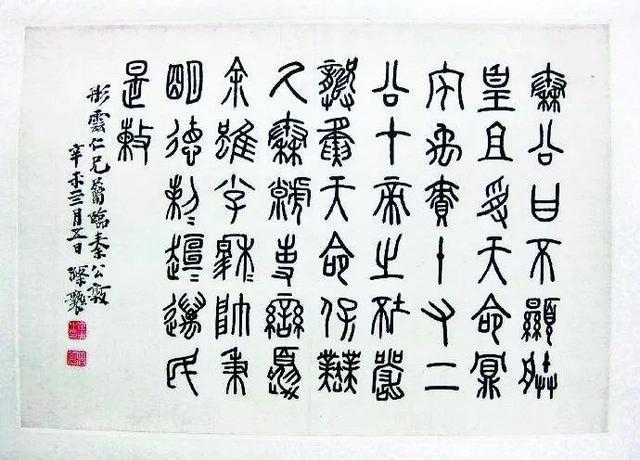 秦公曰不顯朕
皇且受天命鼏
宅禹責十又二
公才帝之坏嚴
龏夤天命保業
氒秦虩事蠻夏
余雖小子穆帥秉
明德剌〻趄〻邁民
是敕
彤雲仁兄屬臨秦公敦
辛未三月五日